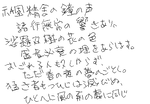 祇園精舎の鐘の声
諸行無常の響きあり
沙羅双樹の花の色
盛者必衰の理をあらはす
おごれる人も久しからず
ただ春の夜の夢のごとし
猛き者もつひには滅びぬ
ひとへに風の前の塵に同じ